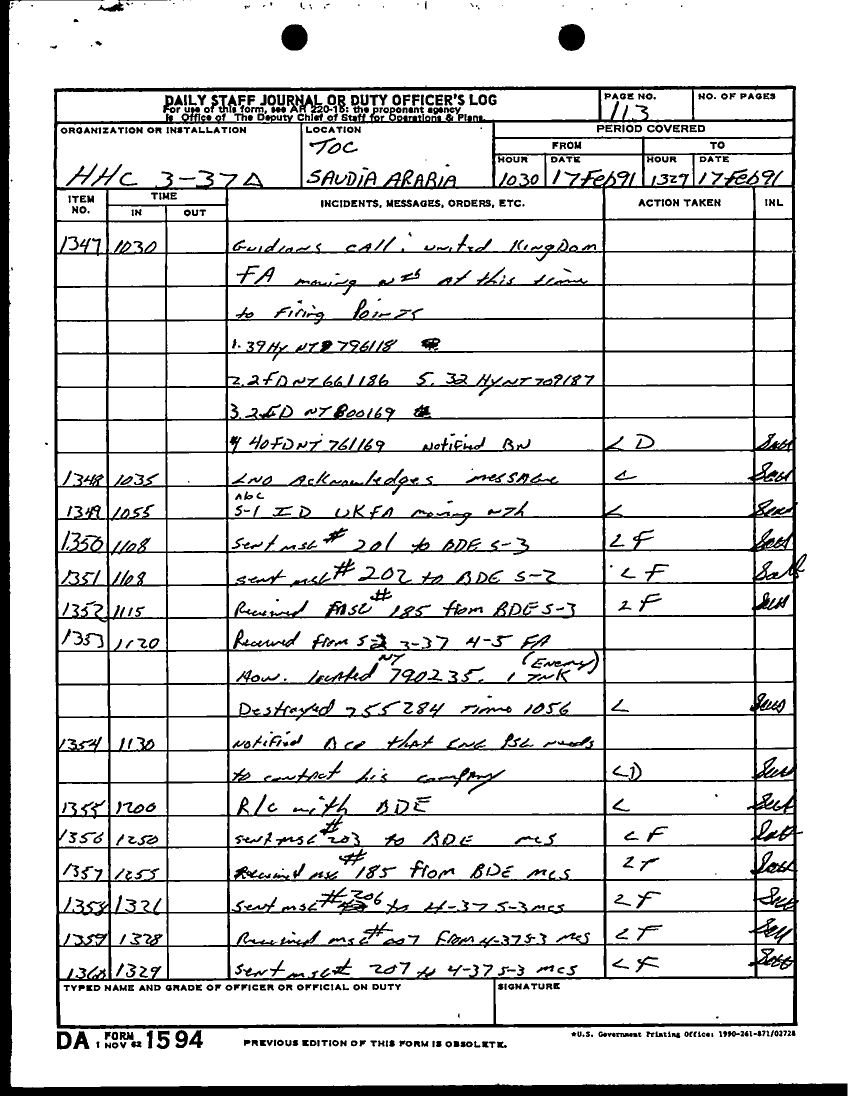 DAILY STAFF JOURNAL OR DUTY OFFICER'S LOG
For use of this form, see AR 220-15: the proponent agency
is Office of The Deputy Chief of Staff for Operations & Plans.
PAGE NO.
113
NO. OF PAGES
ORGANIZATION OR INSTALLATION
HHC 3-37 A
LOCATION
TOC
SAUDIA ARABIA
PERIOD COVERED
FROM TO
HOUR DATE HOUR DATE
1030 17 Feb 91 1327 17 Feb 91
ITEM NO. TIME IN OUT INCIDENTS, MESSAGES, ORDERS, ETC. ACTION TAKEN INL
1347 1030 Guidians call: United Kingdom
FA moving nth at this time
to Firing Points
1. 39 Hy NT 796118
2. 2FD NT 661186 5. 32 Hy NT 709187
3. 2 FD NT 800169
4 40 FD NT 761169 Notified BN L D
1348 1035 LNO Acknowledges message L
1349 1055 ABC S-1 ID UKFA moving nth L
1350 1108 Sent msg # 201 to BDE S-3 L F
1351 1108 sent msg # 202 to BDE S-2 L F
1352 1115 Received MSG # 185 from BDE S-3 L F
1353 1120 Received from 3-37 4-5 FA
How. located NT 790235. 1 TNK (Enemy)
Destroyed 755284 Time 1056 L
1354 1130 Notified that needs
to contact his company L D
1355 1200 R/C with BDE L
1356 1250 sent msg # 203 to BDE MCS L F
1357 1255 Received msg # 185 from BDE MCS L F
1358 1321 Sent msg # 206 to 4-37 S-3 MCS L F
1359 1328 Received msg # 007 from 4-37 S-3 MCS L F
1360 1329 sent msg # 207 to 4-37 S-3 MCS L F
TYPED NAME AND GRADE OF OFFICER OR OFFICIAL ON DUTY SIGNATURE
DA FORM 1 NOV 62 1594 PREVIOUS EDITION OF THIS FORM IS OBSOLETE. *U.S. Government Printing Office: 1990-261-871/02728